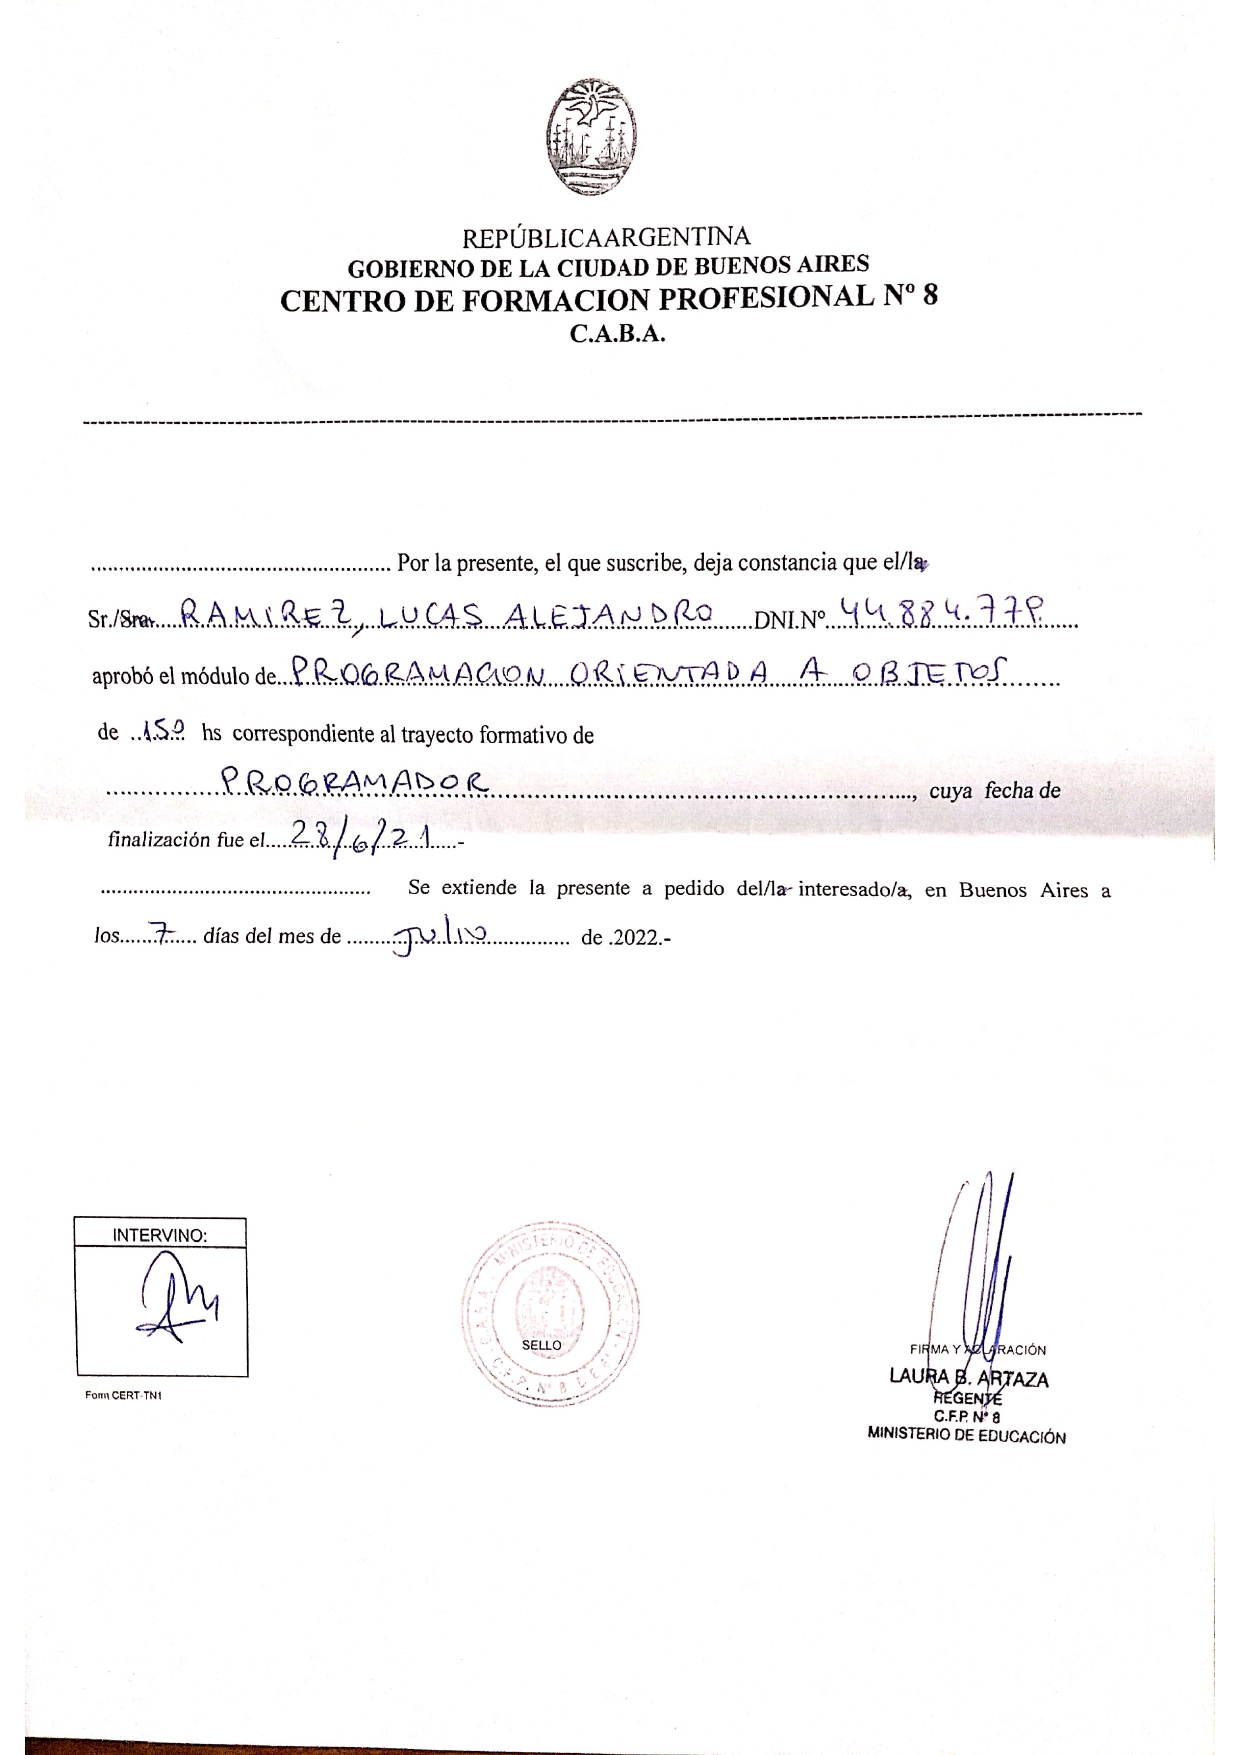 REPÚBLICAARGENTINA
GOBIERNO DE LA CIUDAD DE BUENOS AIRES
CENTRO DE FORMACION PROFESIONAL Nº 8
C.A.B.A.
Por la presente, el que suscribe, deja constancia que el/la
Sr./Sra. RAMIREZ, LUCAS ALEJANDRO DNI.Nº
aprobó el módulo de PROGRAMACION ORIENTADA A OBJETOS
de 150 hs correspondiente al trayecto formativo de
PROGRAMADOR, cuya fecha de
finalización fue el 28/6/21.-
Se extiende la presente a pedido del/la interesado/a, en Buenos Aires a
los 7 días del mes de Julio de .2022.-
INTERVINO:
Form CERT-TN1
MINISTERIO DE EDUCACIÓN
C.A.B.A. C.F.P. Nº 8 D.E.
SELLO
FIRMA Y ACLARACIÓN
LAURA B. ARTAZA
REGENTE
C.F.P. Nº 8
MINISTERIO DE EDUCACIÓN